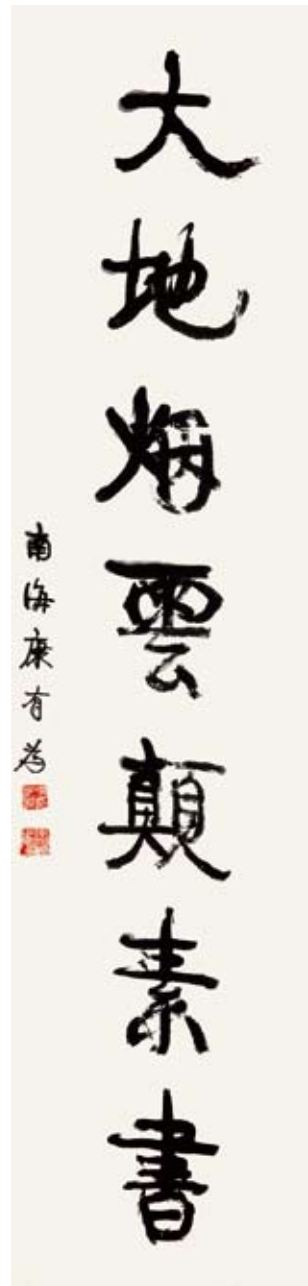 大地烟雲顛素書
南海康有為